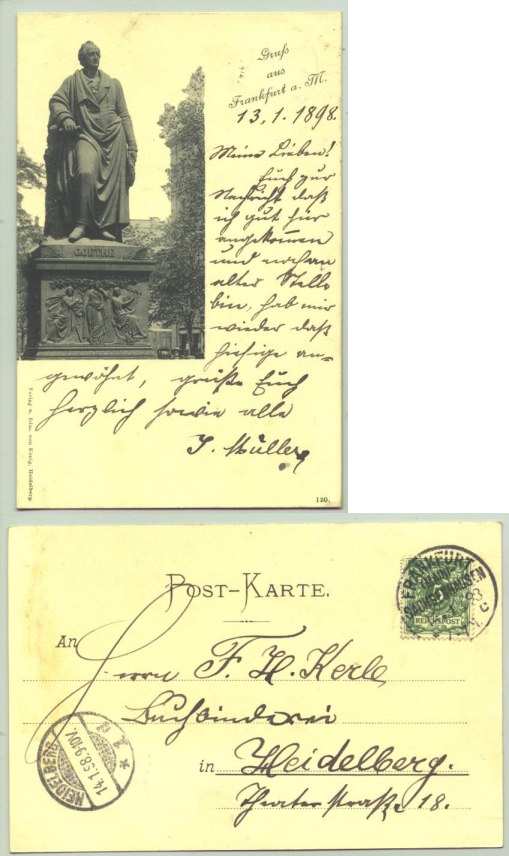 Gruß
aus
Frankfurt a. M.
13.1.1898.
Meine Lieben!
Euch zur
Nachricht daß
ich gut hier
angekommen
und noch an
alter Stelle
bin, hab mir
wieder daß
hiesige an=
gewöhnt, grüße Euch
herzlich sowie alle
J. Müller
GOETHE
Verlag v. Edm. von König, Heidelberg.
120.
POST-KARTE.
An Herrn F. H. Kerle
Buchbinderei
in Heidelberg.
Theater straße 18.
FRANKFURT
SACHSENHAUSEN
REICHSPOST
HEIDELBERG
14.1.98.9-10V.